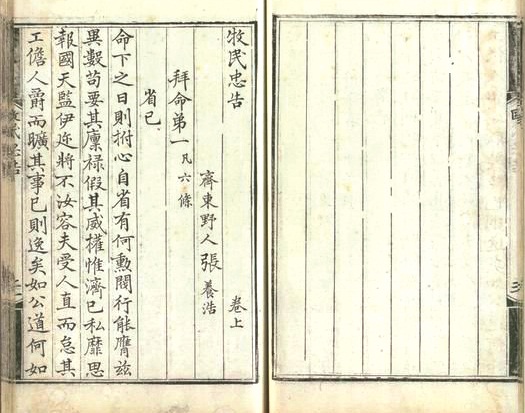 牧民忠告 卷上
齊東野人張養浩
拜命第一 凡六條
省己
命下之日則拊心自省有何勲閥行能膺兹
異數苟要其廩禄假其威權惟濟己私靡思
報國天監伊邇將不汝容夫受人直而怠其
工儋人爵而曠其事己則逸矣如公道何如